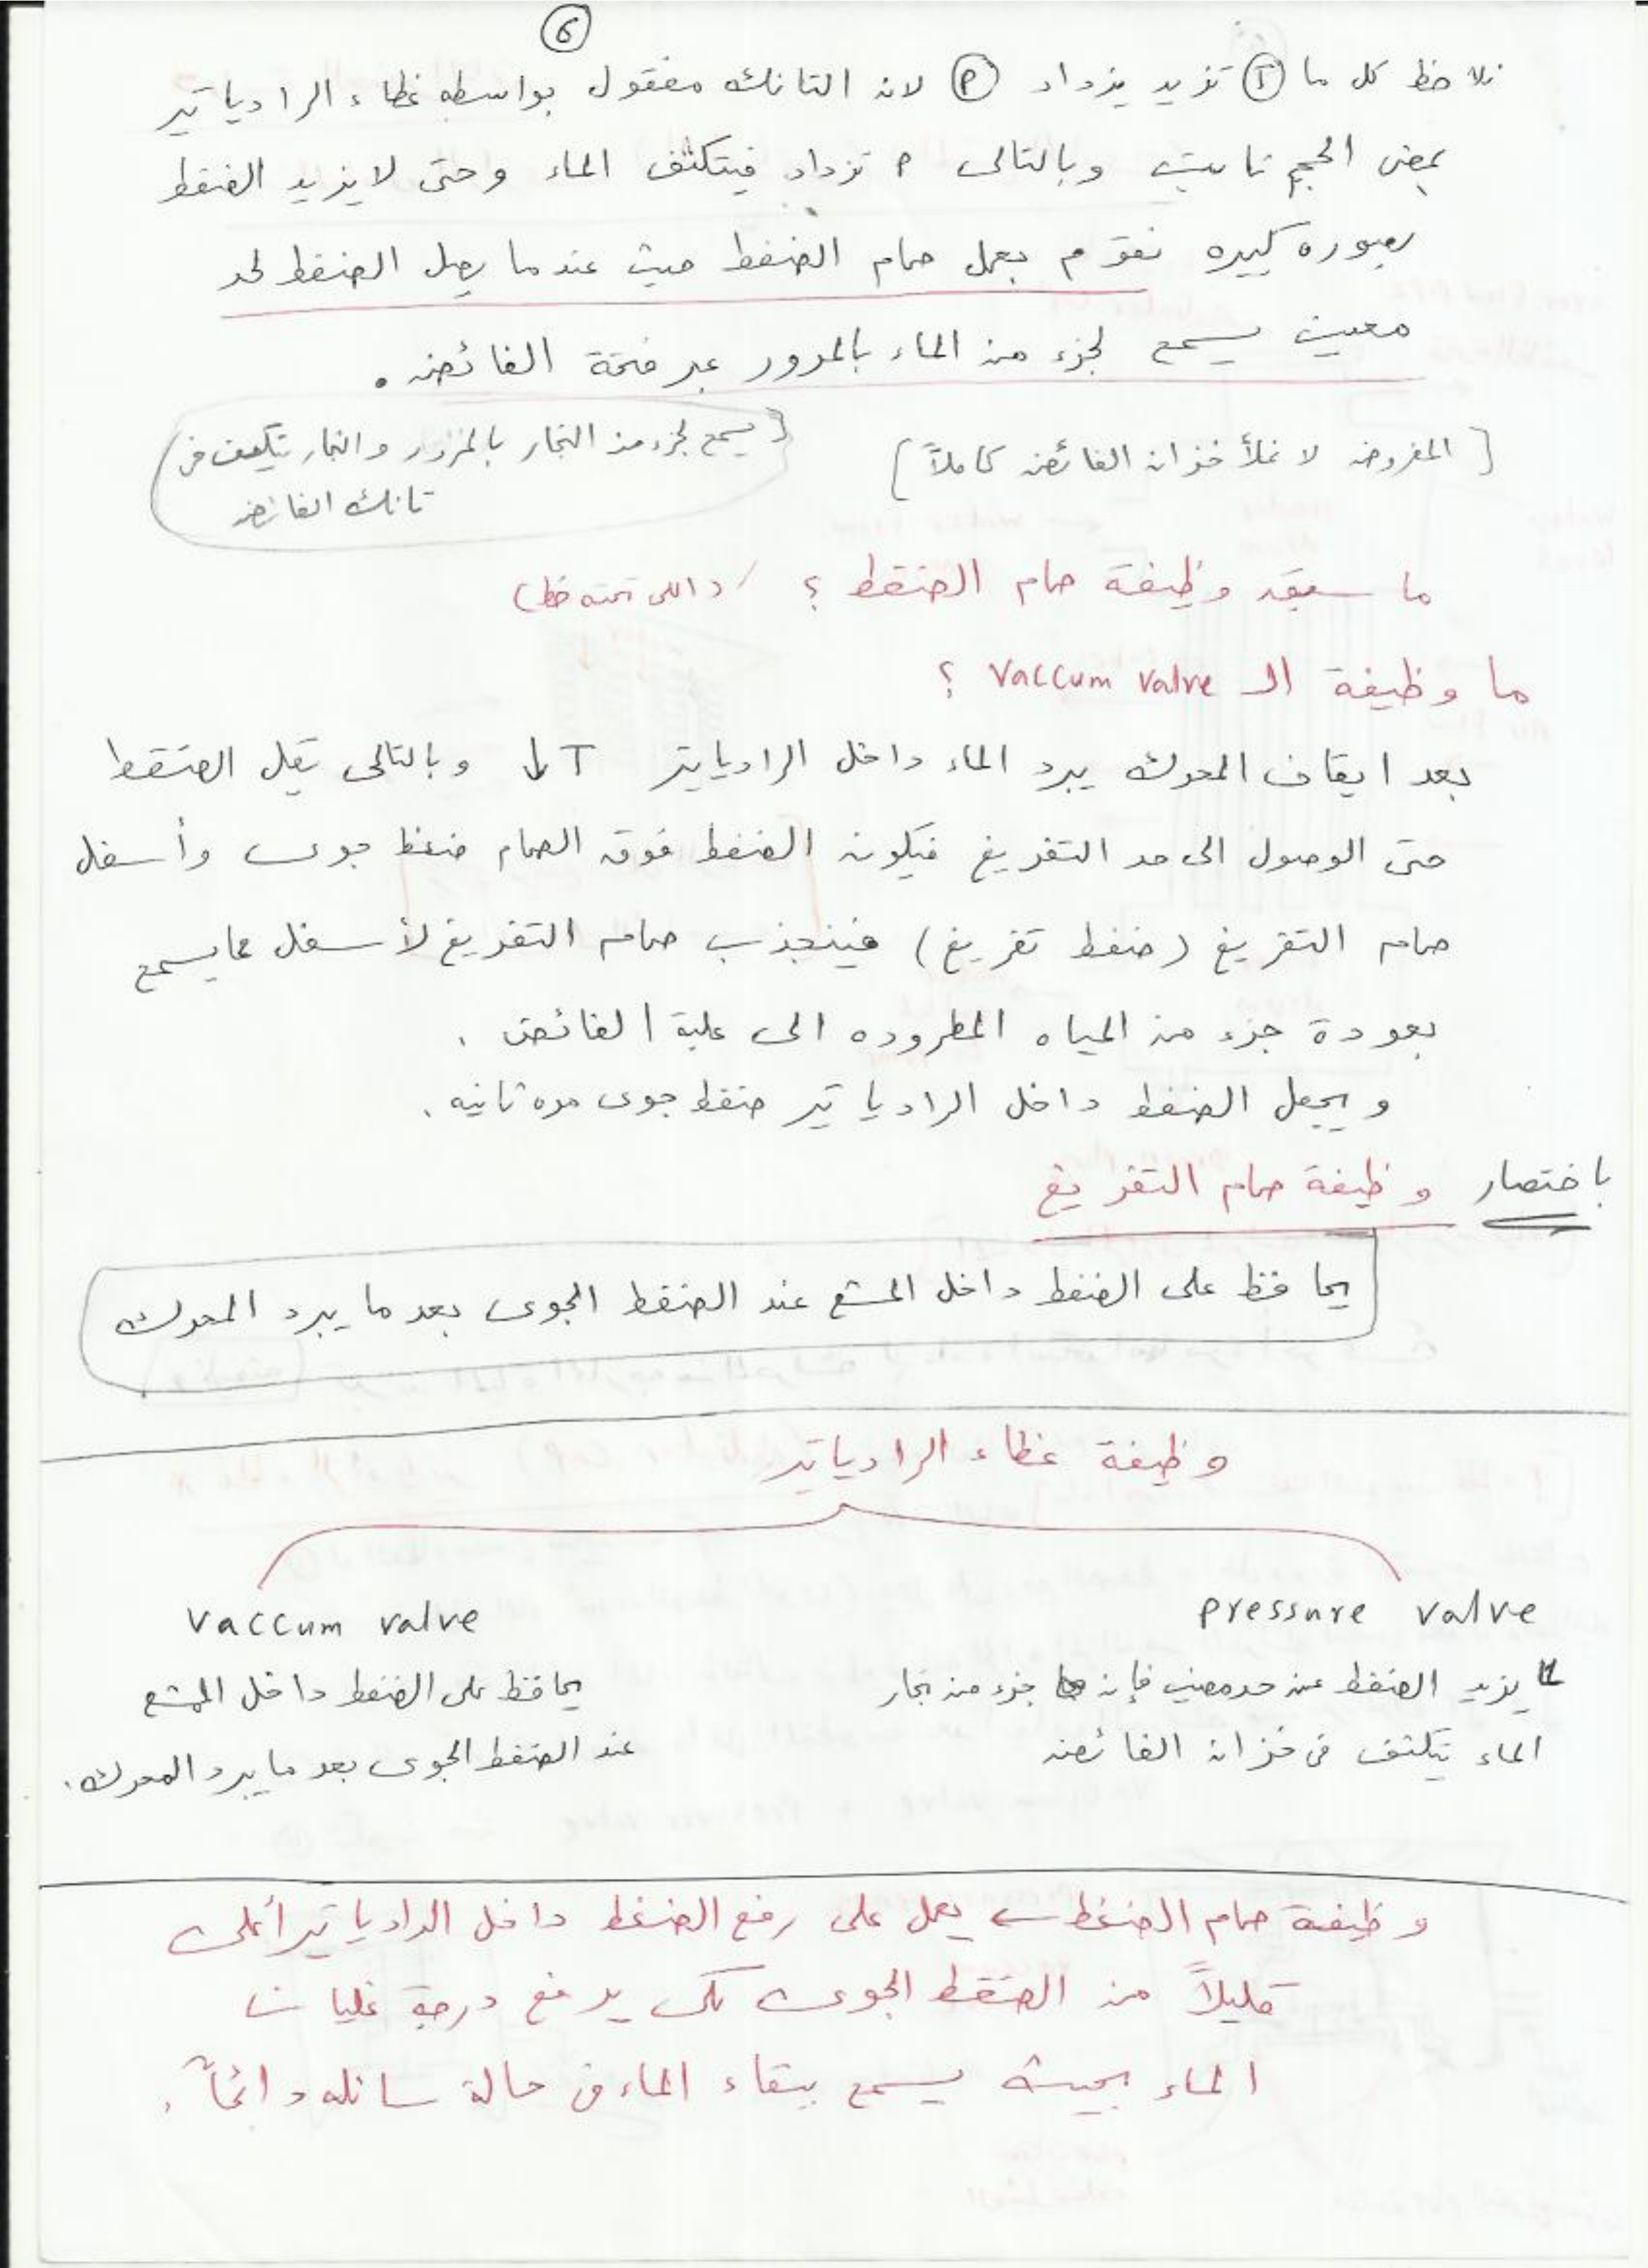 6
نلاحظ كل ما T تزيد يزداد P لان التانك مقفول بواسطه غطاء الرادياتير
بمعنى الحجم ثابت وبالتالى P تزداد فيتكثف الماء وحتى لا يزيد الضغط
بصوره كبيره نقوم بعمل صمام الضغط حيث عندما يصل الضغط لحد
معين يسمح لجزء من الماء بالمرور عبر فتحة الفائض .
[ المفروض لا نملأ خزان الفائض كاملاً ]
{ يسمح لجزء من البخار بالمرور والبخار يتكثف فى
تانك الفائض
ما سبق وظيفة صمام الضغط ؟ (اللى تحته خط)
ما وظيفة الـ Vaccum valve ؟
بعد ايقاف المحرك يبرد الماء داخل الرادياتير T ↓ وبالتالى يقل الضغط
حتى الوصول الى حد التفريغ فيكون الضغط فوق الصمام ضغط جوى وأسفل
صمام التفريغ (ضغط تفريغ) فينجذب صمام التفريغ لأسفل مما يسمح
بعودة جزء من المياه المطروده الى علبة الفائض .
ويجعل الضغط داخل الرادياتير ضغط جوى مره ثانيه .
باختصار وظيفة صمام التفريغ
يحافظ على الضغط داخل المشع عند الضغط الجوى بعد ما يبرد المحرك
وظيفة غطاء الرادياتير
pressure valve
لما يزيد الضغط عند حد معين فإن جزء من بخار
الماء يتكثف فى خزان الفائض
Vaccum valve
يحافظ على الضغط داخل المشع
عند الضغط الجوى بعد ما يبرد المحرك .
وظيفة صمام الضغط ← يعمل على رفع الضغط داخل الرادياتير أعلى
قليلاً من الضغط الجوى لكى يرفع درجة غليان
الماء بحيث يسمح ببقاء الماء فى حالة سائله دائماً .